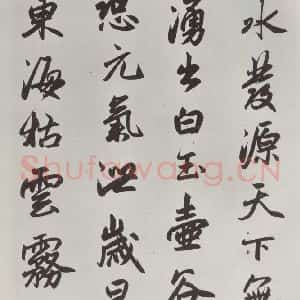 水發源天下無
湧出白玉壺谷
恐元氣泄歲旱
東海枯雲霧
Shufawang.CN